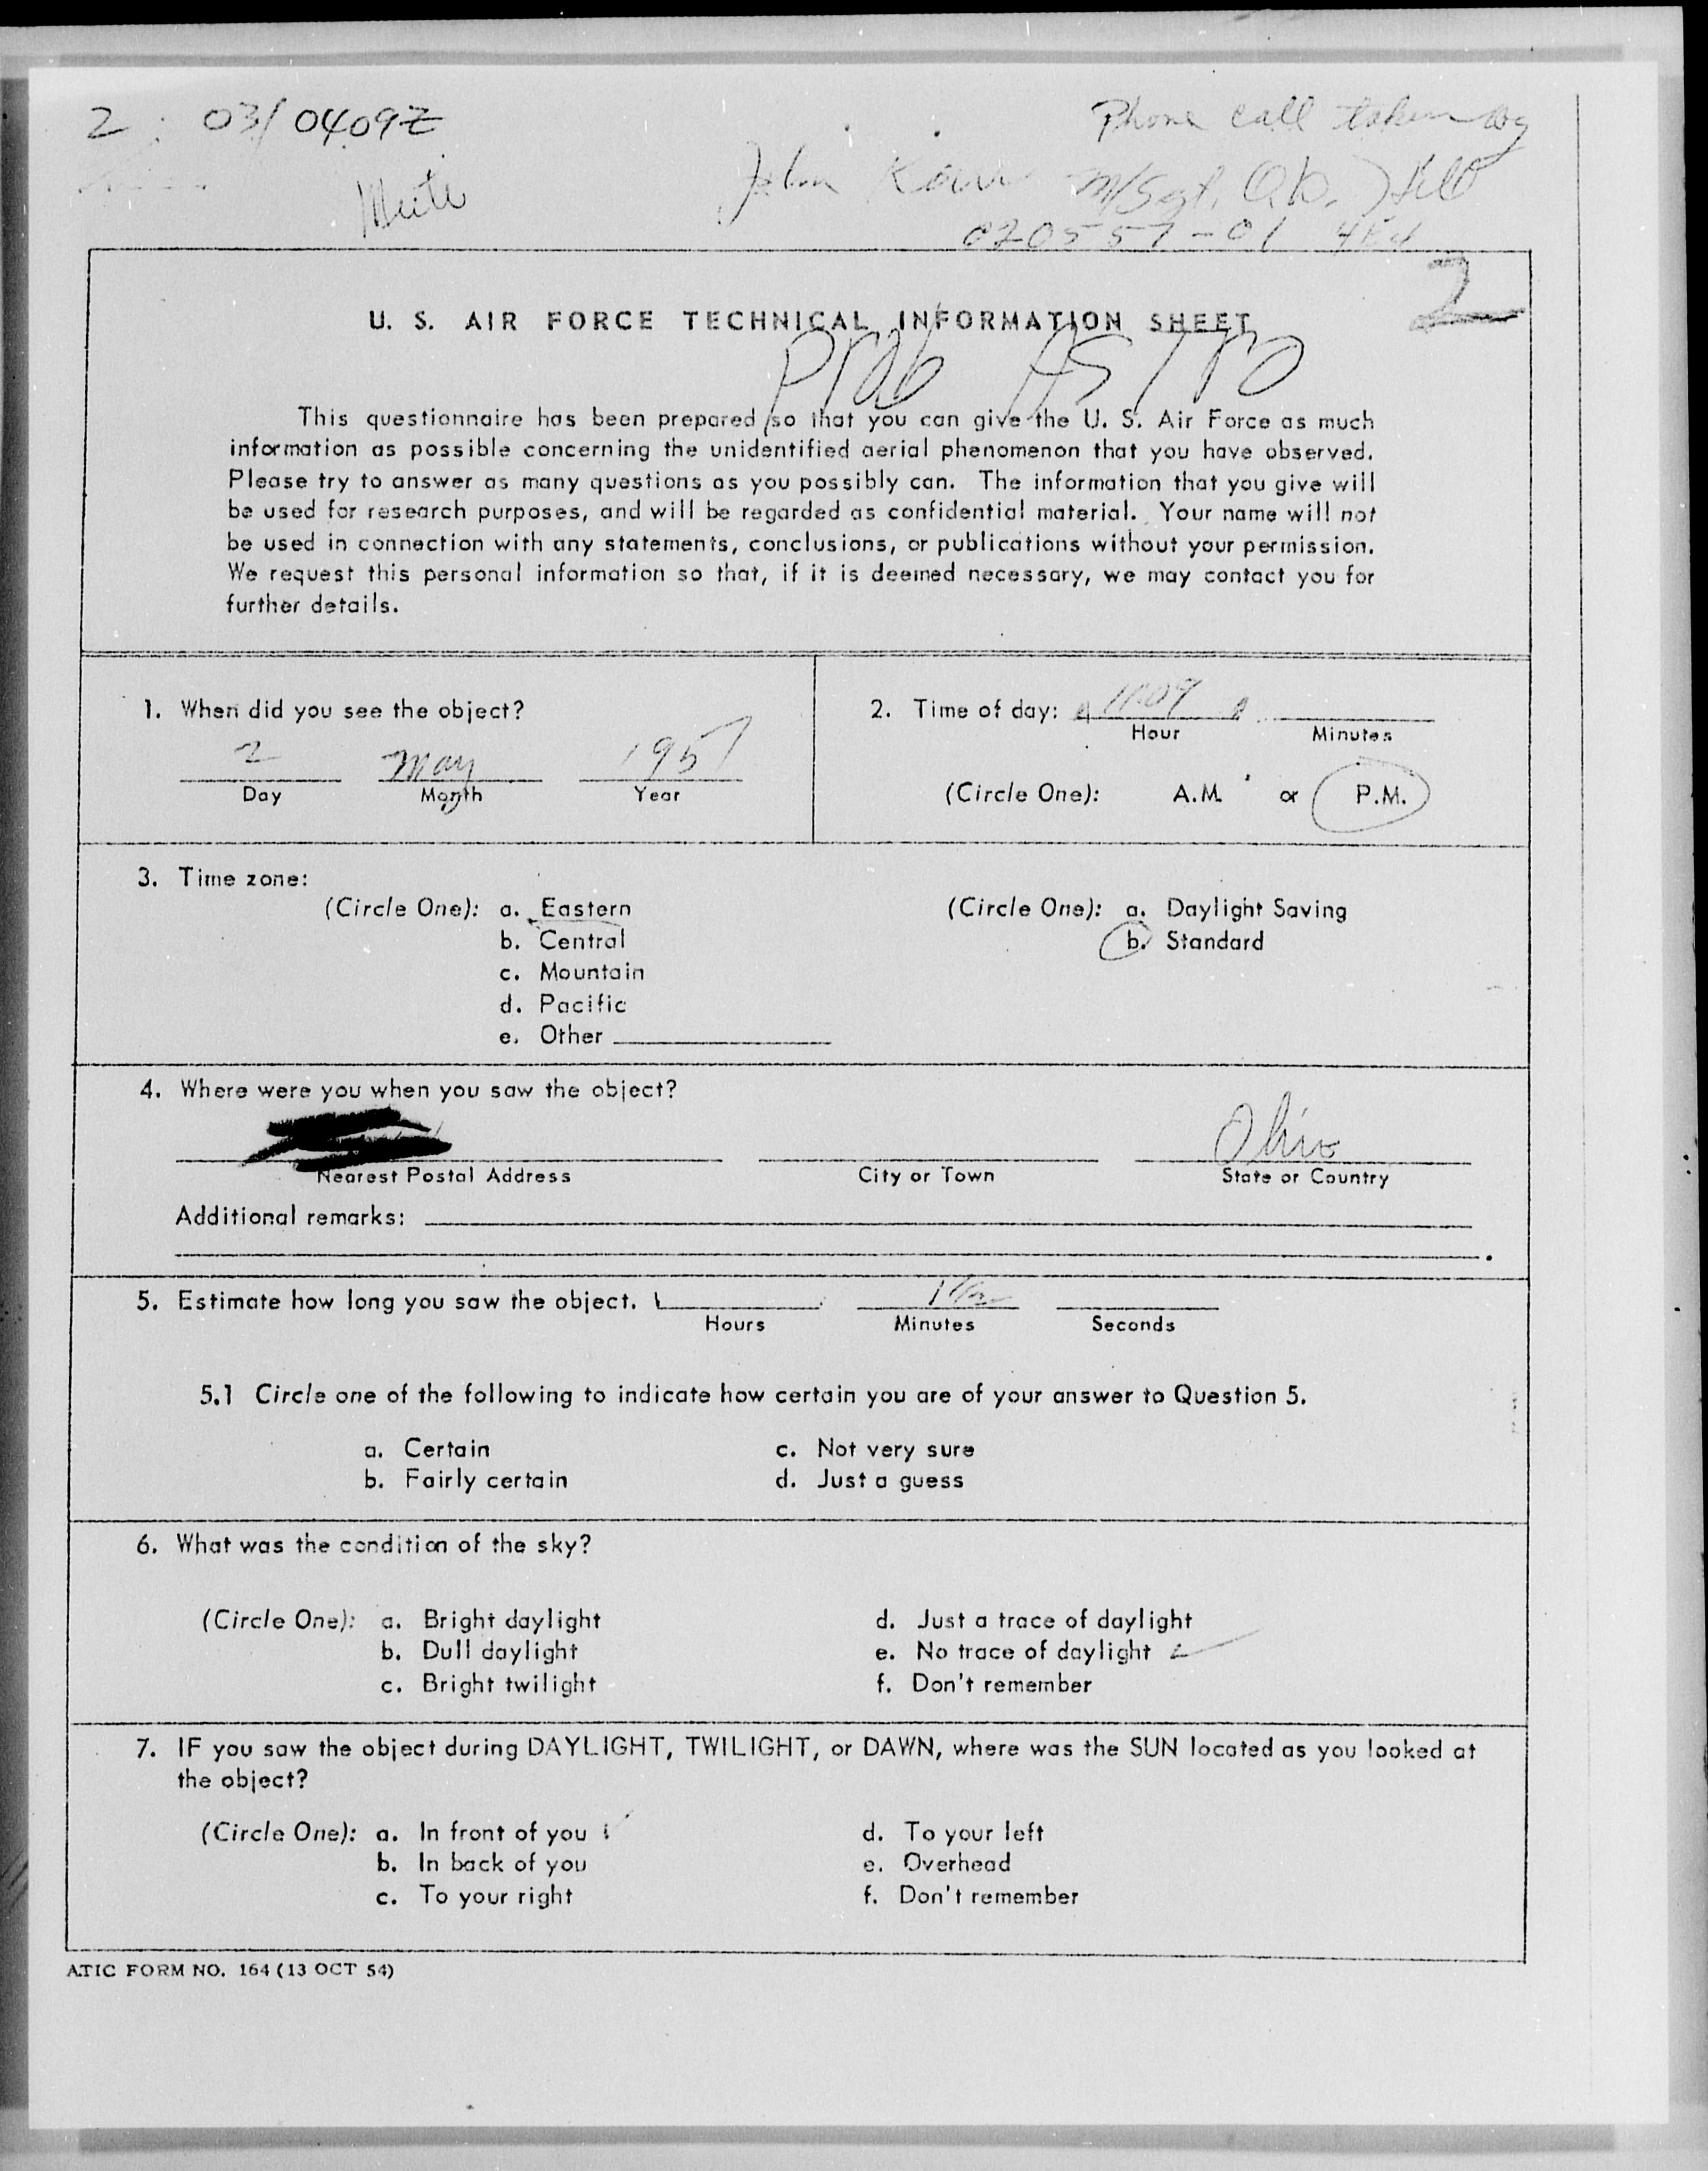 2 : 03/0409Z
Phone call taken by
John M/Sgt.
020557-01
2
U. S. AIR FORCE TECHNICAL INFORMATION SHEET
Prob Astro
This questionnaire has been prepared so that you can give the U. S. Air Force as much
information as possible concerning the unidentified aerial phenomenon that you have observed.
Please try to answer as many questions as you possibly can. The information that you give will
be used for research purposes, and will be regarded as confidential material. Your name will not
be used in connection with any statements, conclusions, or publications without your permission.
We request this personal information so that, if it is deemed necessary, we may contact you for
further details.
1. When did you see the object?
2 May 1957
Day Month Year
2. Time of day: 11:09
Hour Minutes
(Circle One): A.M. or P.M.
3. Time zone:
(Circle One): a. Eastern
b. Central
c. Mountain
d. Pacific
e. Other
(Circle One): a. Daylight Saving
b. Standard
4. Where were you when you saw the object?
Ohio
Nearest Postal Address City or Town State or Country
Additional remarks:
5. Estimate how long you saw the object.
Hours Minutes Seconds
5.1 Circle one of the following to indicate how certain you are of your answer to Question 5.
a. Certain
b. Fairly certain
c. Not very sure
d. Just a guess
6. What was the condition of the sky?
(Circle One): a. Bright daylight
b. Dull daylight
c. Bright twilight
d. Just a trace of daylight
e. No trace of daylight
f. Don't remember
7. IF you saw the object during DAYLIGHT, TWILIGHT, or DAWN, where was the SUN located as you looked at
the object?
(Circle One): a. In front of you
b. In back of you
c. To your right
d. To your left
e. Overhead
f. Don't remember
ATIC FORM NO. 164 (13 OCT 54)